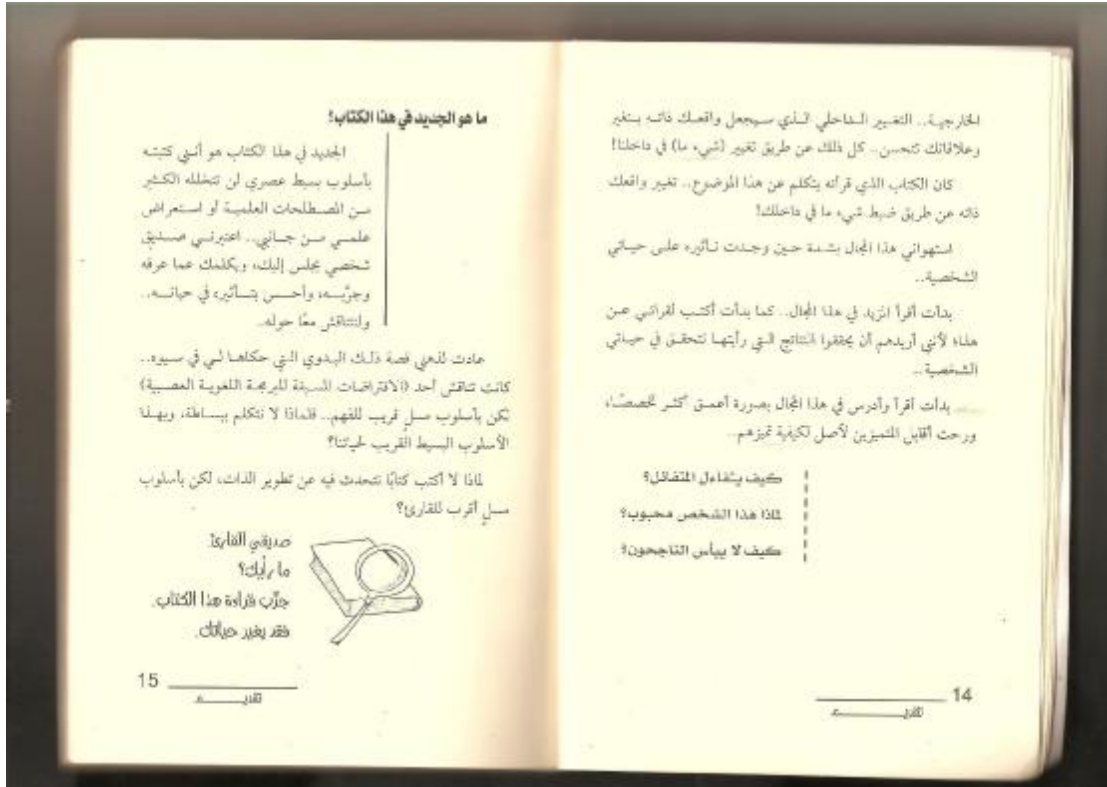 الخارجية.. التغيير الداخلي الذي سيجعل واقعك ذاته يتغير
وعلاقاتك تتحسن.. كل ذلك عن طريق تغيير (شيء ما) في داخلنا!
كان الكتاب الذي قرأته يتكلم عن هذا الموضوع.. تغيير واقعك
ذاته عن طريق ضبط شيء ما في داخلك!
استهواني هذا المجال بشدة حين وجدت تأثيره على حياتي
الشخصية..
بدأت أقرأ المزيد في هذا المجال.. كما بدأت أكتب لقرائي عن
هذا؛ لأنني أريدهم أن يحققوا النتائج التي رأيتها تتحقق في حياتي
الشخصية..
بدأت أقرأ وأدرس في هذا المجال بصورة أعمق أكثر تخصصًا،
ورحت أقابل المتميزين لأصل لكيفية تميزهم..
كيف يتفاءل المتفائل؟
لماذا هذا الشخص محبوب؟
كيف لا ييأس الناجحون؟
14
تقديـــــم
ما هو الجديد في هذا الكتاب؟
الجديد في هذا الكتاب هو أنني كتبته
بأسلوب بسيط عصري لن تتخلله الكثير
من المصطلحات العلمية أو استعراض
علمي من جانبي.. اعتبرني صديق
شخصي يجلس إليك، ويكلمك عما عرفه
وجرَّبه، وأحس بتأثيره في حياته..
ولنتناقش معًا حوله.
عادت لذهني قصة ذلك البدوي التي حكاها لي في سيوه..
كانت تناقش أحد (الافتراضات المسبقة للبرمجة اللغوية العصبية)
لكن بأسلوب مسلٍ قريب للفهم.. فلماذا لا نتكلم ببساطة، وبهذا
الأسلوب البسيط القريب لحياتنا؟
لماذا لا أكتب كتابًا نتحدث فيه عن تطوير الذات، لكن بأسلوب
مسلٍ أقرب للقارئ؟
صديقي القارئ
ما رأيك؟
جرِّب قراءة هذا الكتاب.
فقد يغير حياتك.
15
تقديـــــم